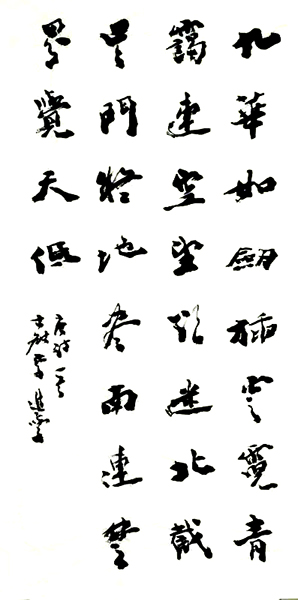 九華如劍插雲霓青
靄連空望欲迷北截
吳門疑地盡南連楚
界覺天低
唐詩一首